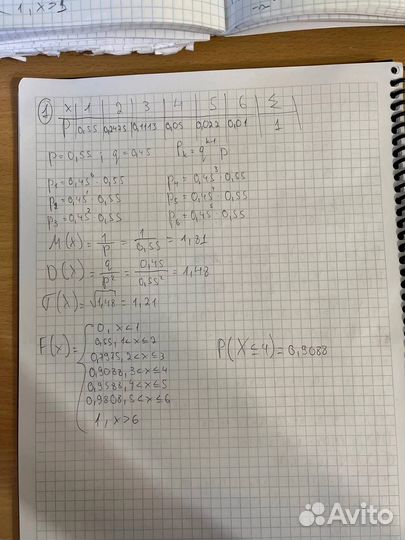 1, x>5
1
X 1 2 3 4 5 6 Σ
P 0,55 0,2475 0,1113 0,05 0,022 0,01 1
p=0,55; q=0,45 Pk=q^(k-1) p
P1=0,45⁰·0,55 P4=0,45³·0,55
P2=0,45¹·0,55 P5=0,45⁴·0,55
P3=0,45²·0,55 P6=0,45⁵·0,55
M(x)=1/p=1/0,55=1,81
D(x)=q/p²=0,45/0,55²=1,48
σ(x)=√1,48=1,21
F(x)={0, x<1
0,55, 1<x≤2
0,7975, 2<x≤3
0,9088, 3<x≤4
0,9588, 4<x≤5
0,9808, 5<x≤6
1, x>6
P(X≤4)=0,9088
Avito